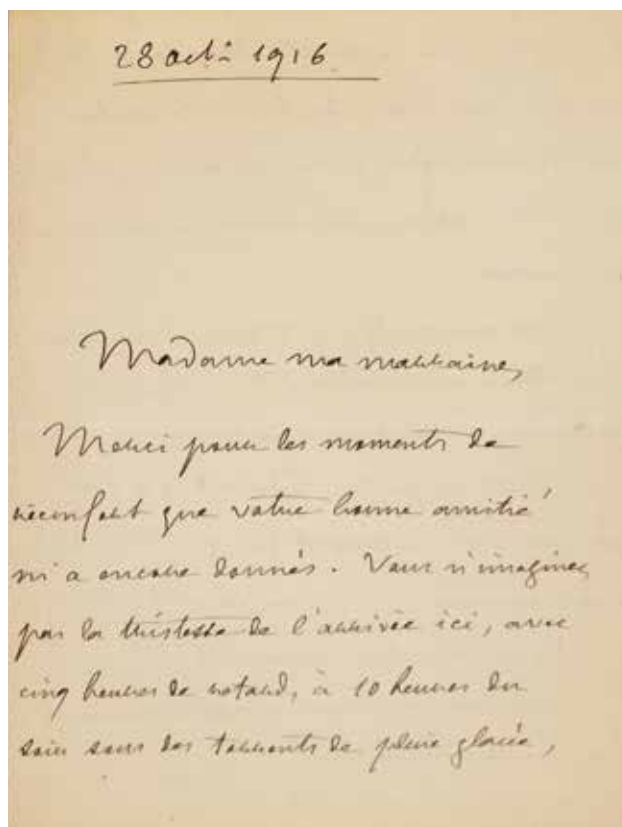 28 oct. 1916
Madame ma marraine,
Merci pour les moments de
réconfort que votre bonne amitié
m'a encore donnés. Vous n'imaginez
pas la tristesse de l'arrivée ici, avec
cinq heures de retard, à 10 heures du
soir sous des torrents de pluie glacée,